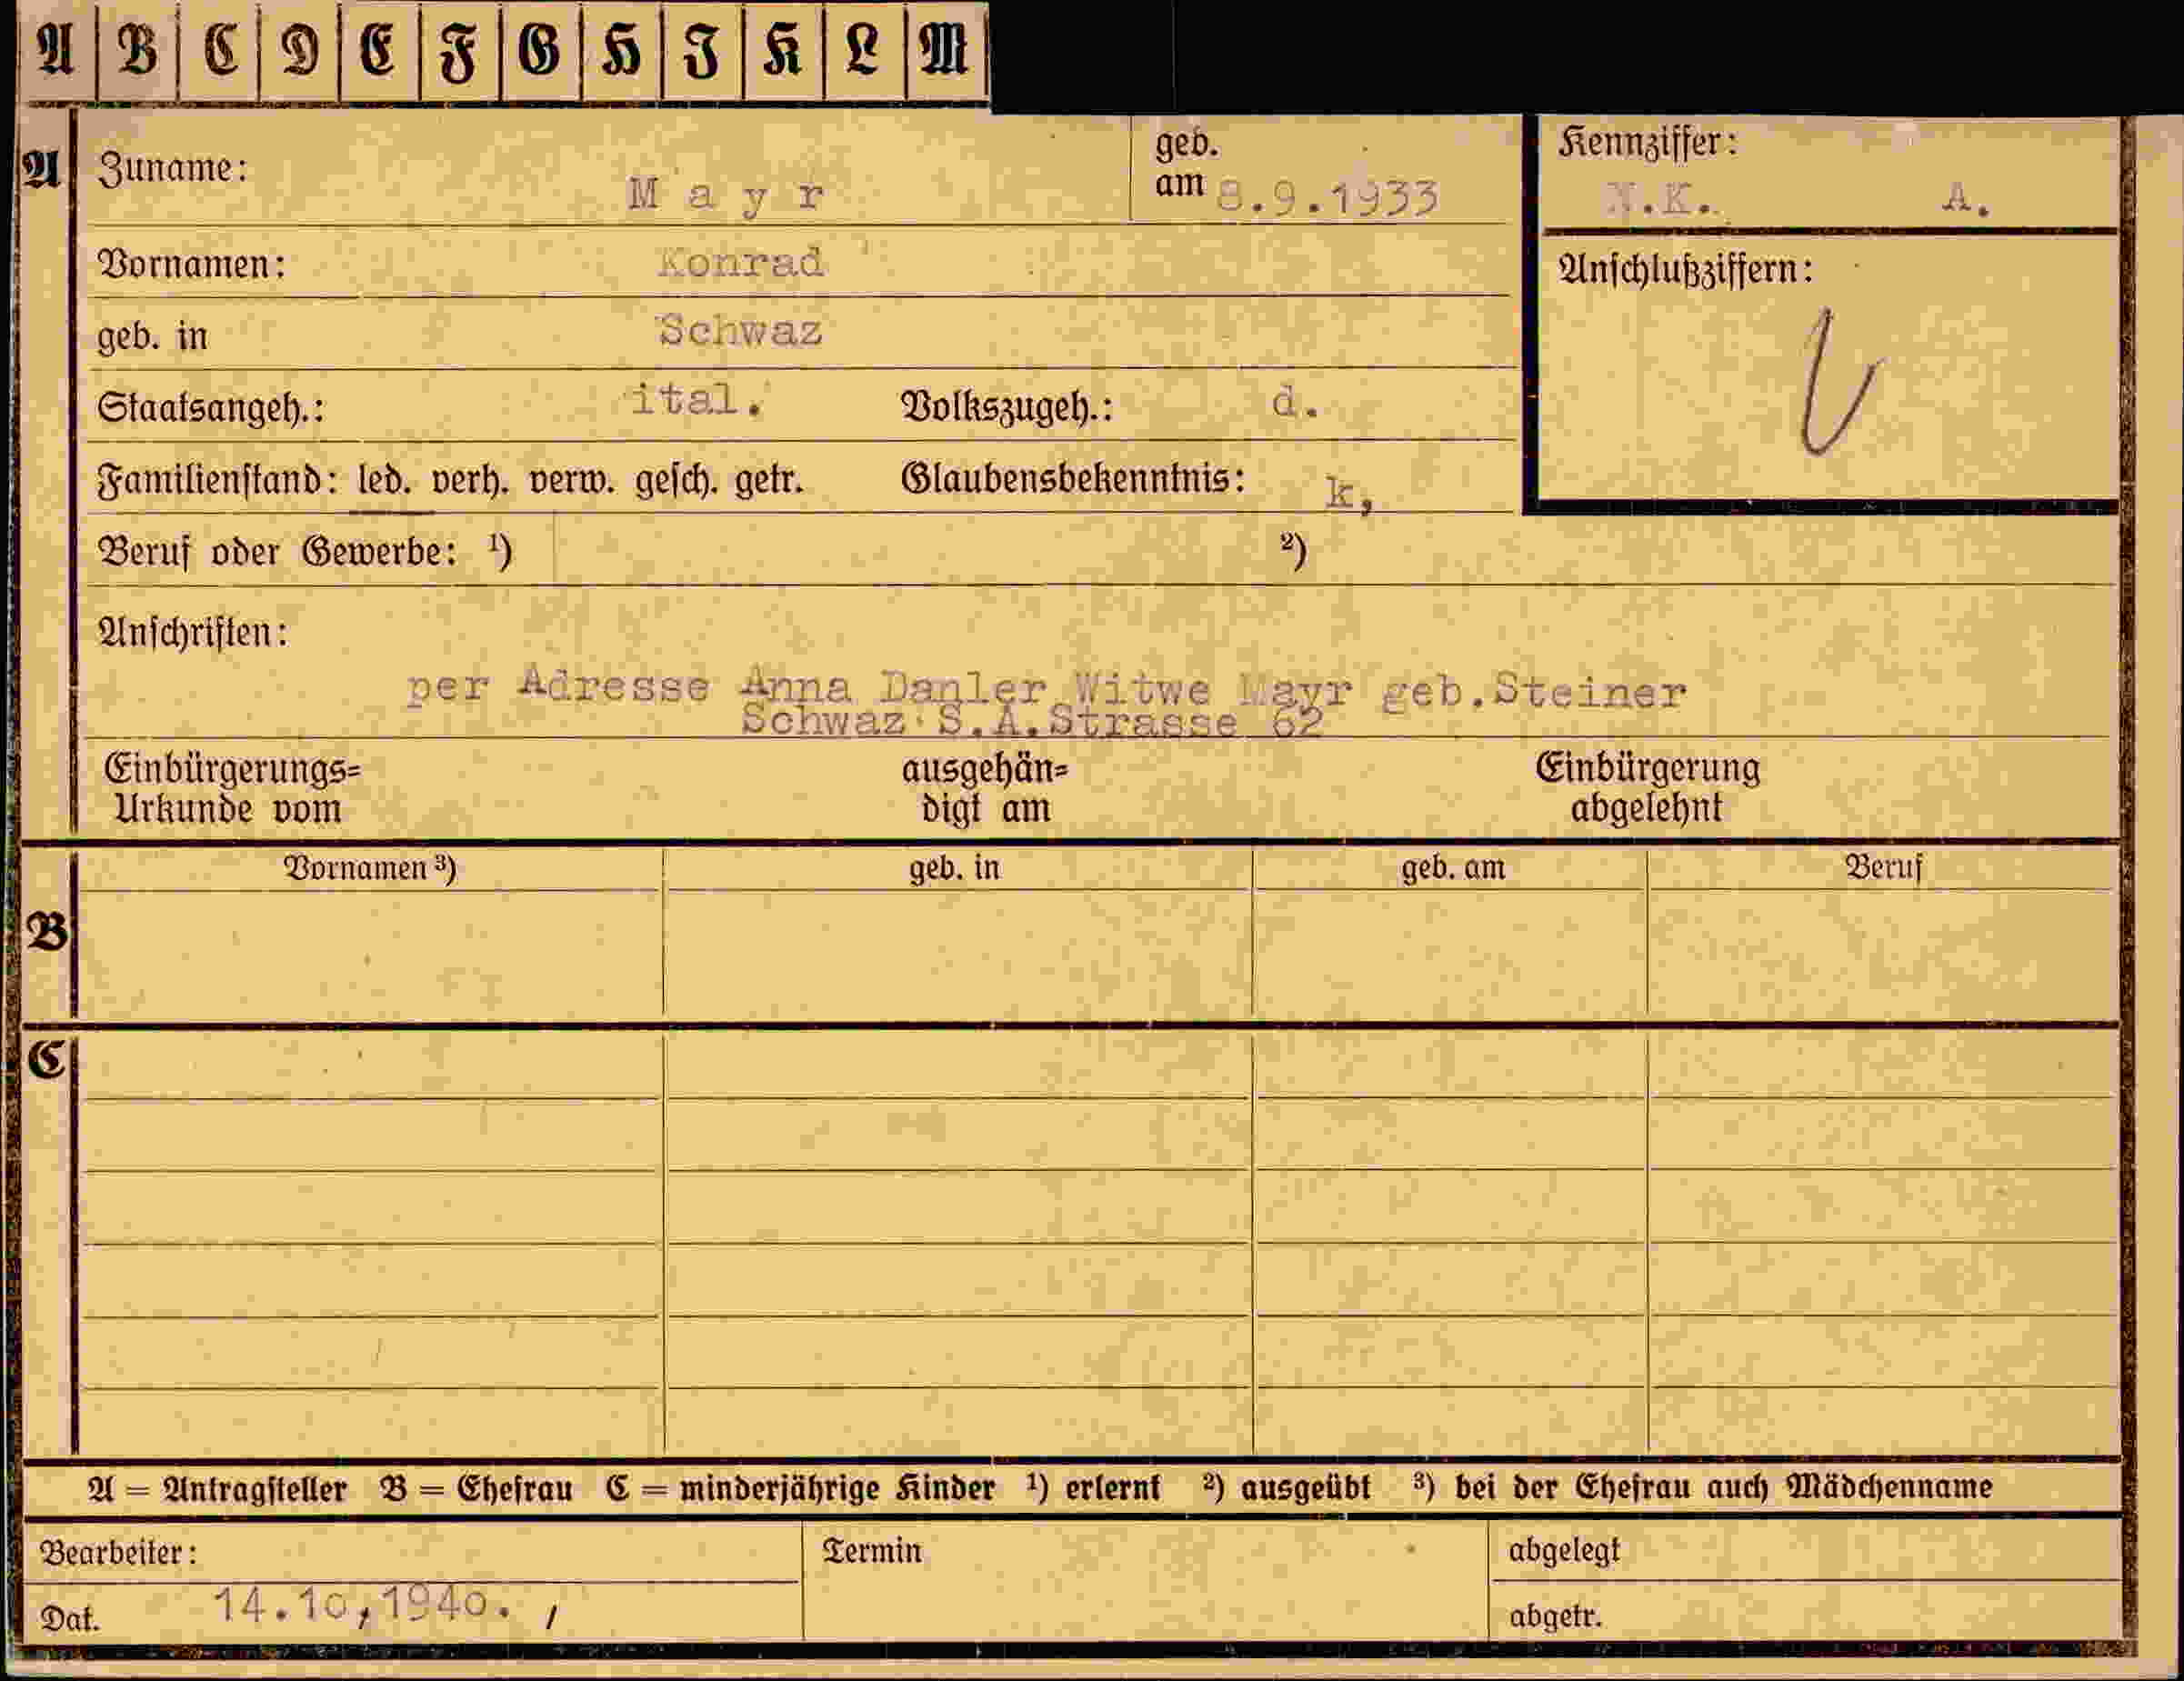 A B C D E F G H J K L M
A Zuname: Mayr geb. am 8.9.1933 Kennziffer: N.K. A.
Vornamen: Konrad Anschlußziffern:
geb. in Schwaz
Staatsangeh.: ital. Volkszugeh.: d.
Familienstand: led. verh. verw. gesch. getr. Glaubensbekenntnis: k,
Beruf oder Gewerbe: ¹) ²)
Anschriften:
per Adresse Anna Danler Witwe Mayr geb.Steiner
Schwaz S.A.Strasse 62
Einbürgerungs= ausgehän= Einbürgerung
Urkunde vom digt am abgelehnt
Vornamen ³) geb. in geb. am Beruf
B
C
A = Antragsteller B = Ehefrau C = minderjährige Kinder ¹) erlernt ²) ausgeübt ³) bei der Ehefrau auch Mädchenname
Bearbeiter: Termin abgelegt
Dat. 14.10,1940. abgetr.